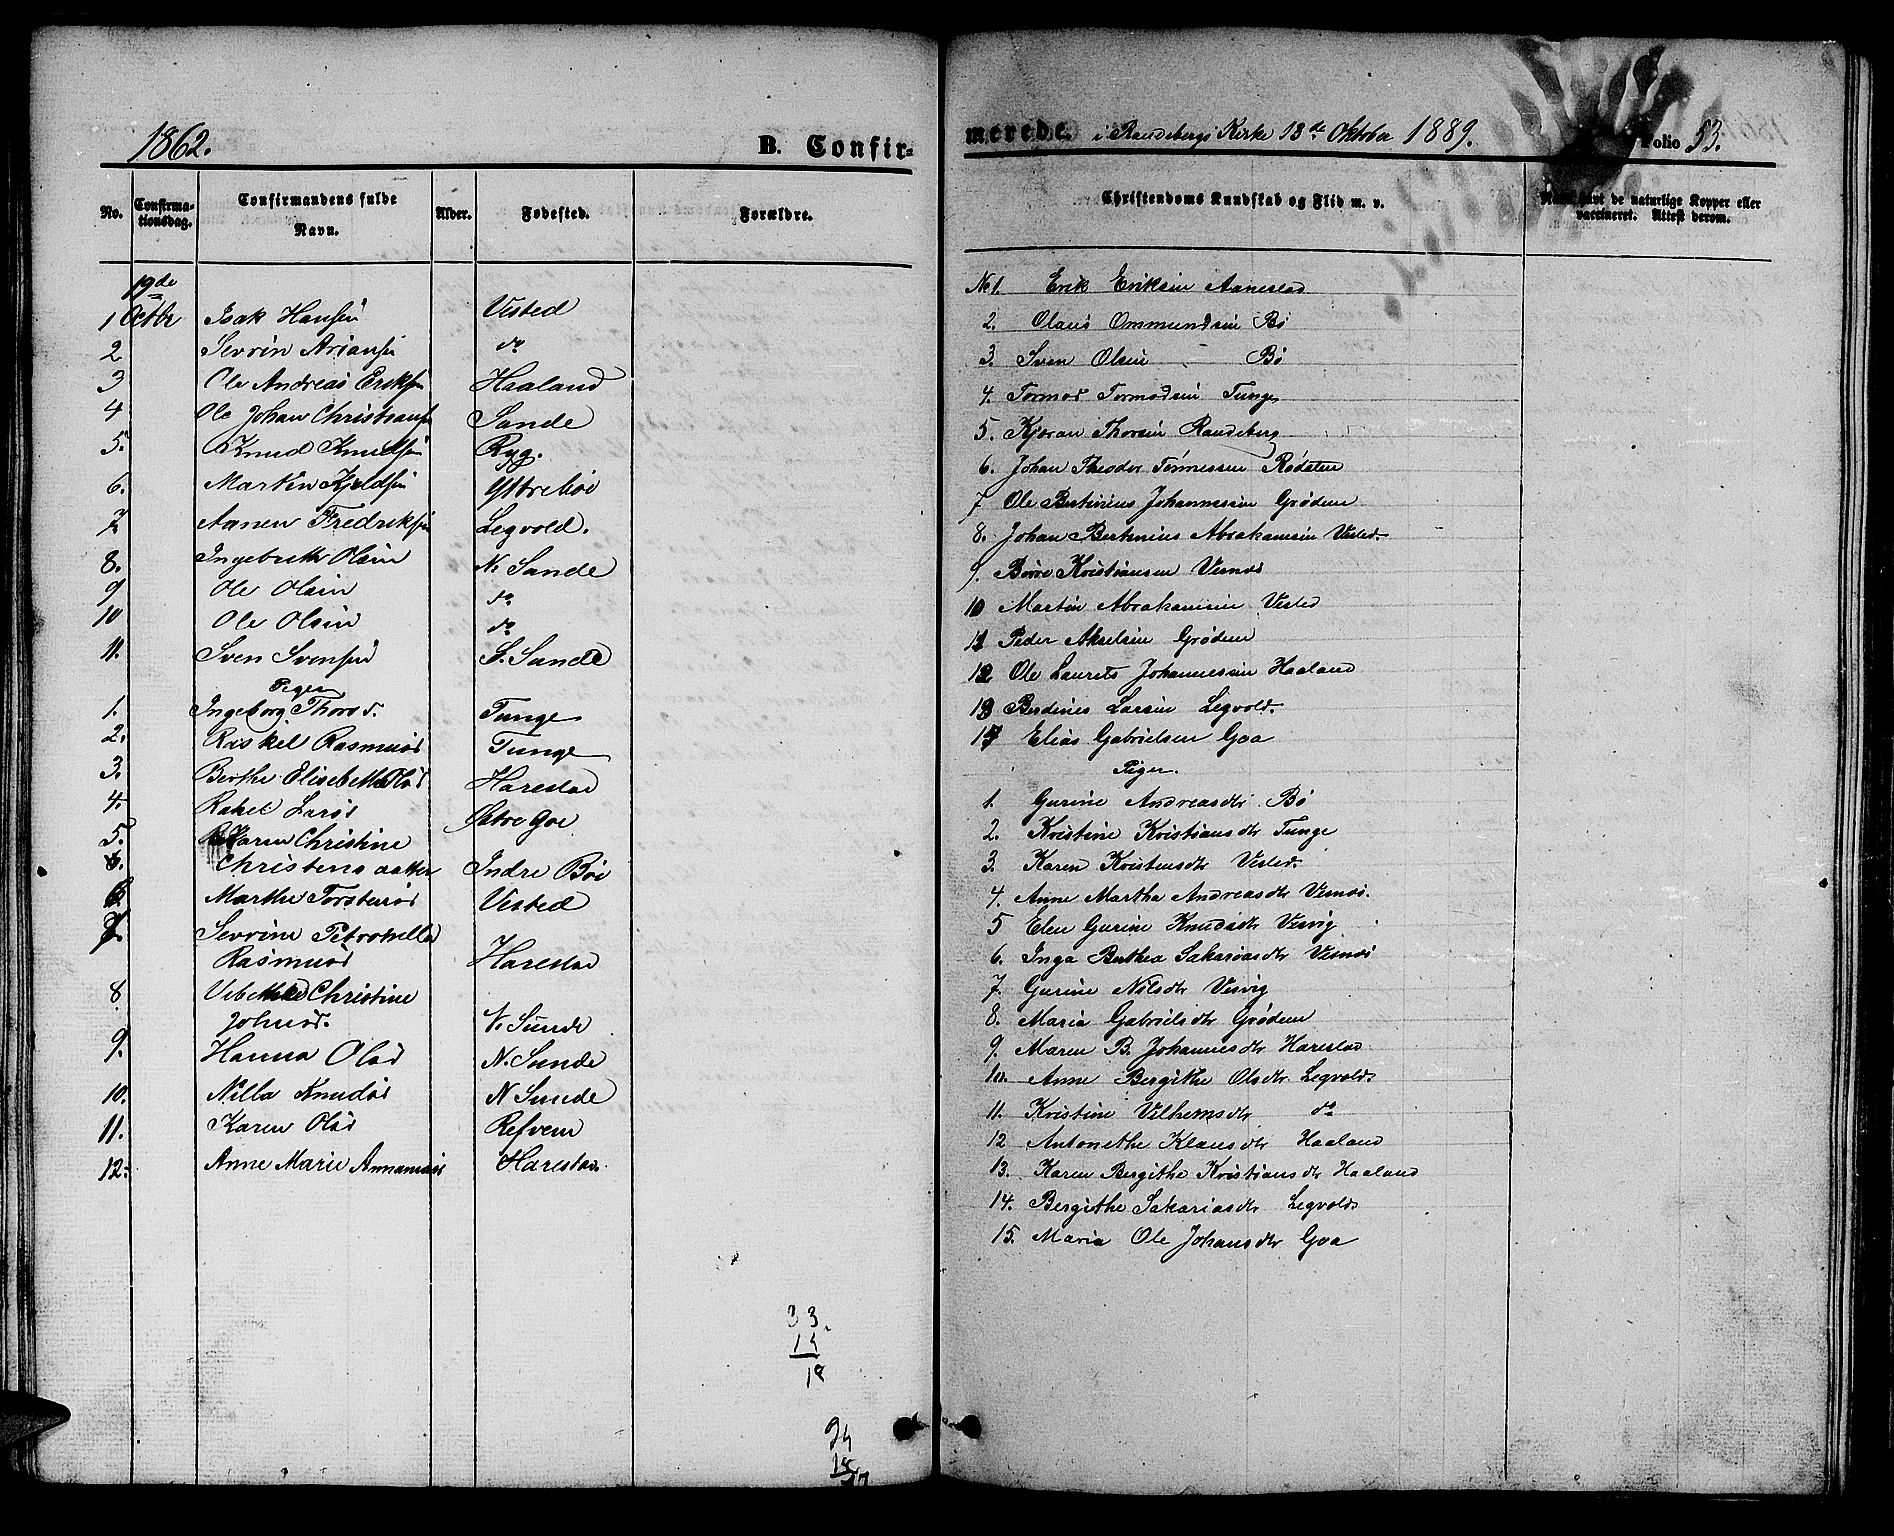 1862.
B. Confir-
No. Confirma-tionsdag. Confirmandens fulde Navn. Alder. Fødested. Forældre.
19de
1 Octbr Isak Hansen Visted
2 Sevrin Ariansen do
3 Ole Andreas Eriksen Haaland
4 Ole Johan Christians Sande
5. Knud Knudsen Ryg.
6. Martin Kjeldsen Yttrebøe
7 Aanen Fredriksen Legvold.
8. Ingebreth Olsin N. Sande
9 Ole Olsin do
10 Ole Olsin do
11. Sven Svensen S. Sande
Piger
1. Ingeborg Thorsd. Tunge
2. Raskel Rasmusd Tunge
3. Berthe Elisebeth Olsd Harestad
4. Rakel Larsd Østre Goe
5. Karen Christine
Christensdatter Indre Bøe
6 Marthe Torstensd Visted
7. Sevrine Petronelle
Rasmusd Harestad
8 Vibekke Christine
Johnsd. N. Sunde
9. Hanna Olsd N. Sunde
10. Nilla Knudsd N Sunde
11. Karen Olsd Refvem
12. Anne Marie Harestad
33.
15
18
merede. i Randebergs Kirke 13de Oktober 1889.
Folio 53.
Christendoms Kundskab og Flid m. v.
de naturlige Kopper eller vaccineret. Attest derom.
No 1. Erik Eriksen Aanestad
2. Olaus Ommundsen Bø
3. Sven Olsen Bø
4. Tormod Tormodsen Tunge
5. Kjøran Thorsen Randeberg
6. Johan Theodor Tønnessen Rødsten
7 Ole Bertinius Johannessen Grødem
8. Johan Bertinius Abrahamsen Visted
9. Børre Kristiansen Visnæs
10 Martin Abrahamsen Visted
11 Peder Akselsen Grødem
12 Ole Laurits Johannessen Haaland
13 Berdines Larsen Legvold.
14 Elias Gabrielsen Goa
Piger.
1. Gurine Andreasdtr Bø
2. Kristine Kristiansdtr Tunge
3. Karen Kristensdtr Visted
4. Anne Martha Andreasdtr Visnæs.
5 Elen Gurine Knudsdtr Visvig
6. Inga Berthea Sakariasdtr Visnæs
7. Gurine Nilsdtr Visvig
8. Maria Gabrielsdtr Grødem
9. Maren B. Johannesdtr Harestad
10. Anne Bergithe Olsdtr Legvold
11. Kristine Vilhemsdtr do
12 Antonethe Klausdtr Haaland
13. Karen Bergithe Kristiansdtr Haaland
14. Bergithe Sakariasdtr Legvold
15. Maria Ole Johansdtr Goa